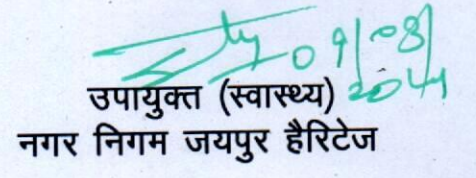 09/08/
उपायुक्त (स्वास्थ्य)
नगर निगम जयपुर हैरिटेज